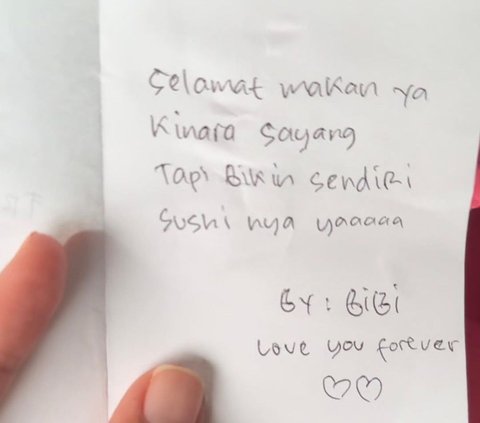 Selamat makan ya
Kinara Sayang
Tapi Bikin Sendiri
Sushi nya yaaaaa
By : BiBi
Love you forever
♡♡